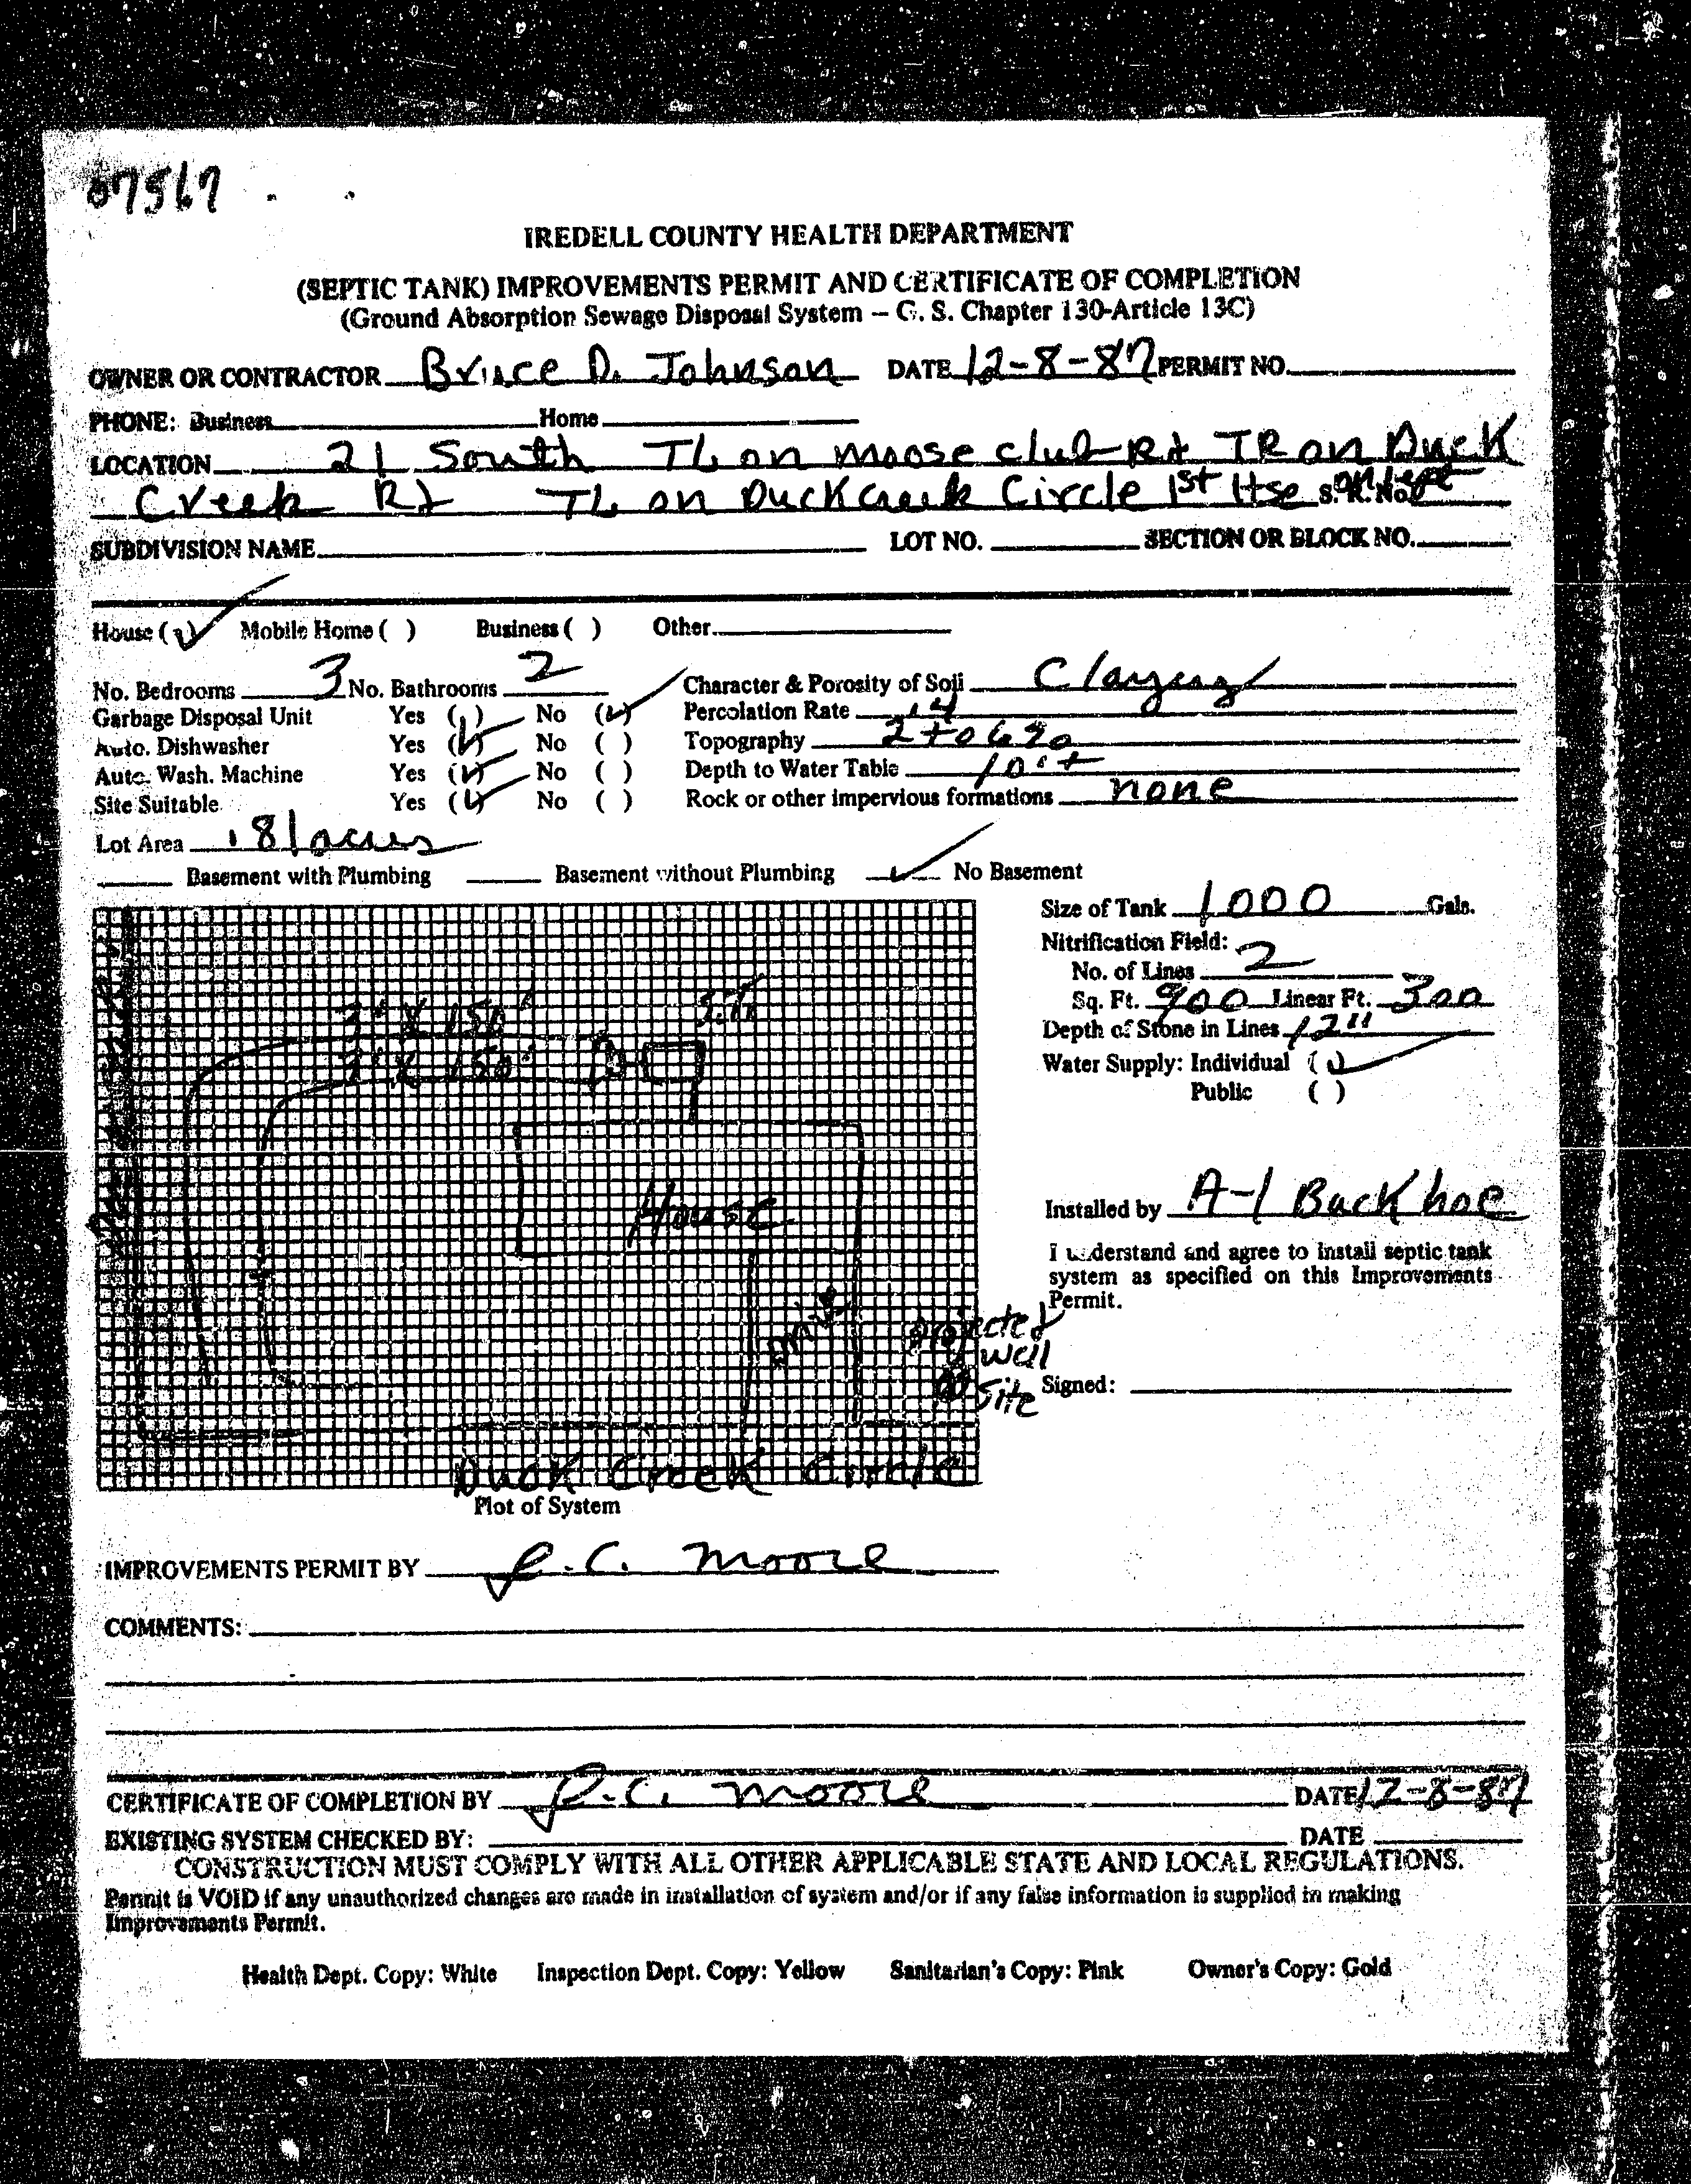 07567
IREDELL COUNTY HEALTH DEPARTMENT
(SEPTIC TANK) IMPROVEMENTS PERMIT AND CERTIFICATE OF COMPLETION
(Ground Absorption Sewage Disposal System – G. S. Chapter 130-Article 13C)
OWNER OR CONTRACTOR Bruce D. Johnson DATE 12-8-87 PERMIT NO.
PHONE: Business Home
LOCATION 21 South TL on Moose Club Rd TR on Duck
Creek Rd TL on Duck Creek Circle 1st Hse on left S. R. No.
SUBDIVISION NAME LOT NO. SECTION OR BLOCK NO.
House (✓) Mobile Home ( ) Business ( ) Other
No. Bedrooms 3 No. Bathrooms 2 Character & Porosity of Soil Clayey
Garbage Disposal Unit Yes ( ) No (✓) Percolation Rate .4
Auto. Dishwasher Yes (✓) No ( ) Topography 2 to 6%
Auto. Wash. Machine Yes (✓) No ( ) Depth to Water Table 10'+
Site Suitable Yes (✓) No ( ) Rock or other impervious formations none
Lot Area .81 acres
Basement with Plumbing Basement without Plumbing ✓ No Basement
Size of Tank 1000 Gals.
Nitrification Field:
No. of Lines 2
Sq. Ft. 900 Linear Ft. 300
Depth of Stone in Lines 12"
Water Supply: Individual (✓)
Public ( )
3' X 150'
3' X 150'
S.T.
House
Drive
Installed by A-1 Backhoe
I understand and agree to install septic tank
system as specified on this Improvements
Permit.
projected
well
site
Signed:
Duck Creek Circle
Plot of System
IMPROVEMENTS PERMIT BY J.C. Moore
COMMENTS:
CERTIFICATE OF COMPLETION BY J.C. Moore DATE 12-8-87
EXISTING SYSTEM CHECKED BY: DATE
CONSTRUCTION MUST COMPLY WITH ALL OTHER APPLICABLE STATE AND LOCAL REGULATIONS.
Permit is VOID if any unauthorized changes are made in installation of system and/or if any false information is supplied in making
Improvements Permit.
Health Dept. Copy: White Inspection Dept. Copy: Yellow Sanitarian's Copy: Pink Owner's Copy: Gold